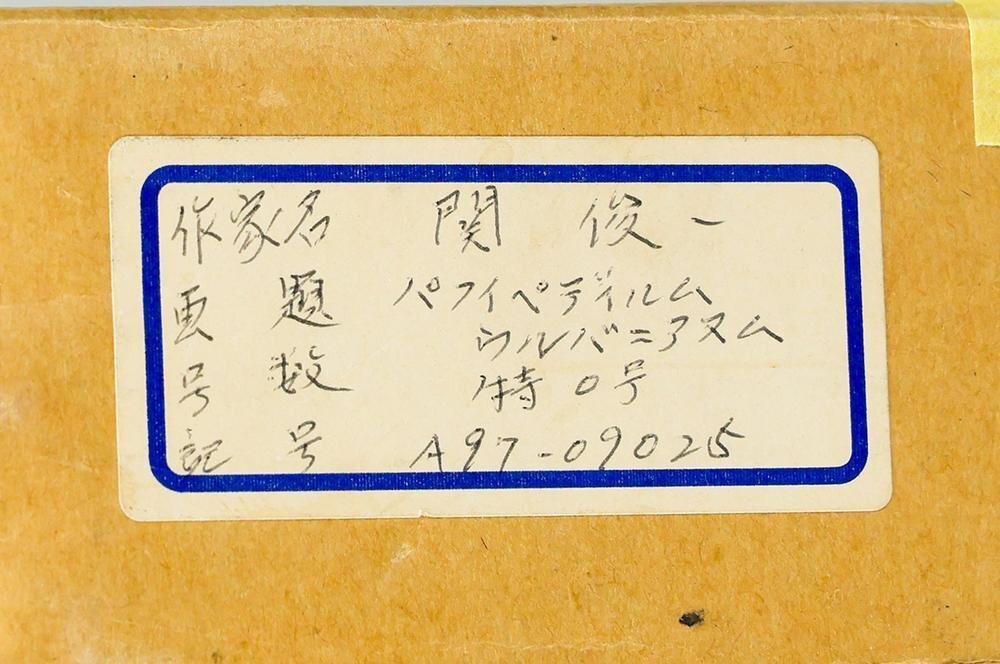 作家名 関 俊一
画題 パフイペディルム
ウルバニアヌム
号数 特0号
記号 A97-09025